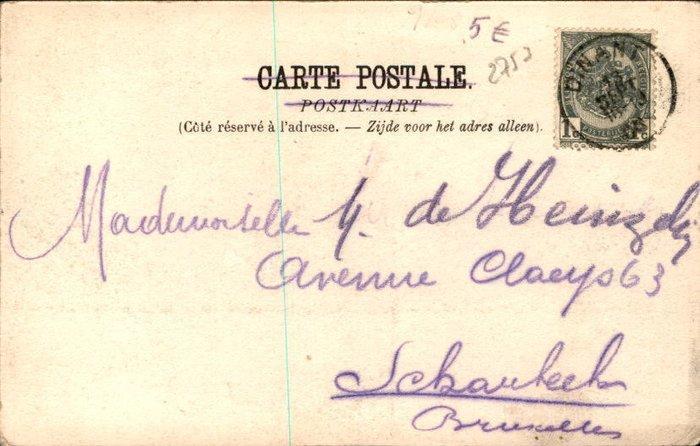 5 €
2752
CARTE POSTALE.
POSTKAART
(Côté réservé à l'adresse. — Zijde voor het adres alleen).
DINANT
1c
Mademoiselle Y. de
Avenue Claeys 63
Schaerbeek
Bruxelles